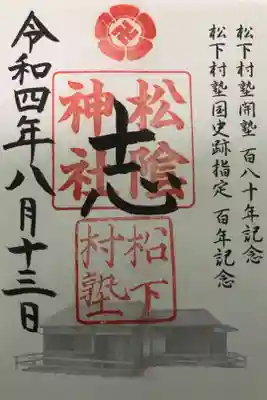 松下村塾開塾 百八十年記念
松下村塾国史跡指定 百年記念
松陰神社
志
松下村塾
令和四年八月十三日